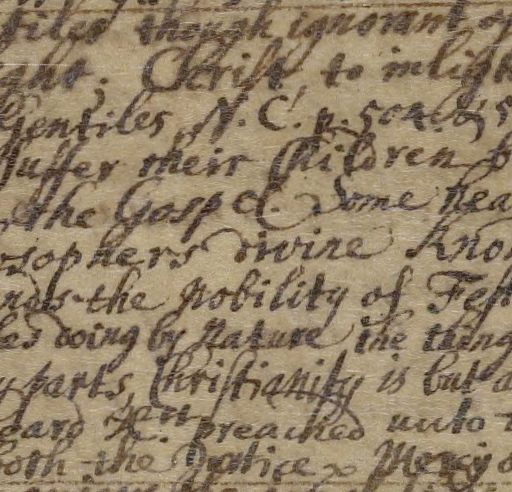 tiles though ignorant of
Christ to inligh
Gentiles N. C. p. 504. & 5
suffer their Children
the Gospel. Some hea
sophers divine Kno
the Nobility of Fes
doing by Nature the thing
parts, Christianity is but a
eard yett preached unto
both the Justice & Mercy